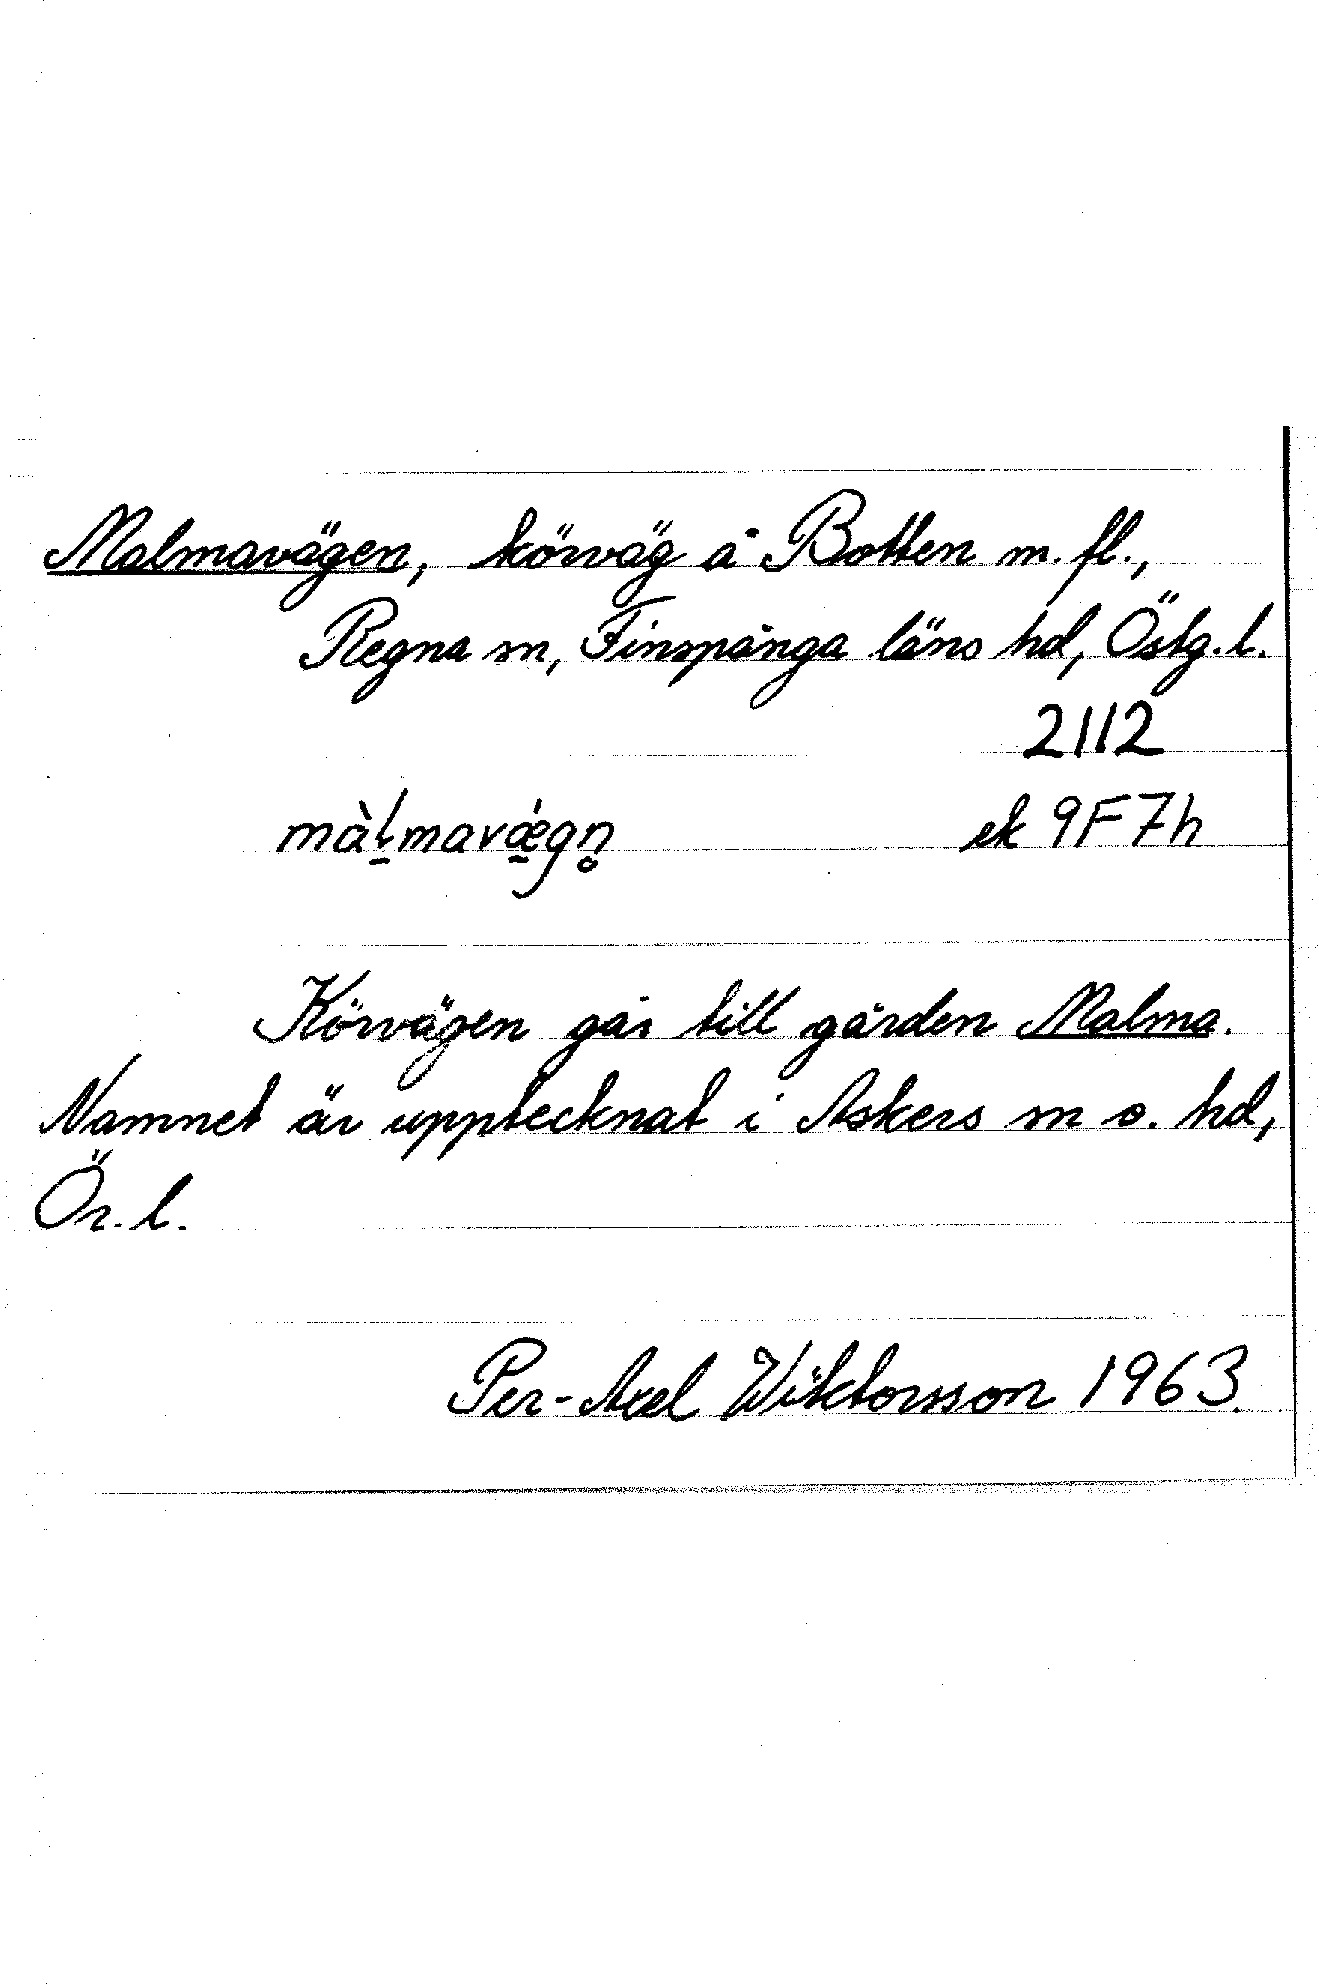 Malmavägen, körväg å Botten m. fl.,
Regna sn, Finspånga läns hd, Östg. l.
2112
màl̠mavǽ̠gn̥ ek 9F7h
Körvägen går till gården Malma.
Namnet är upptecknat i Askers sn o. hd,
Ör. l.
Per-Axel Wiktorsson 1963.